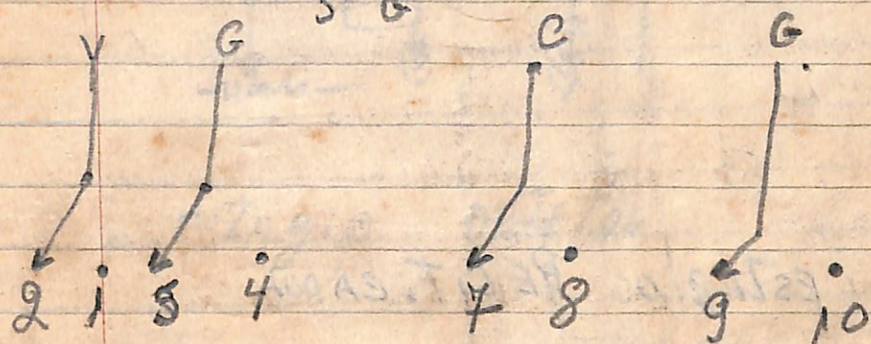 Y G C G
2 1 4 7 8 9 10